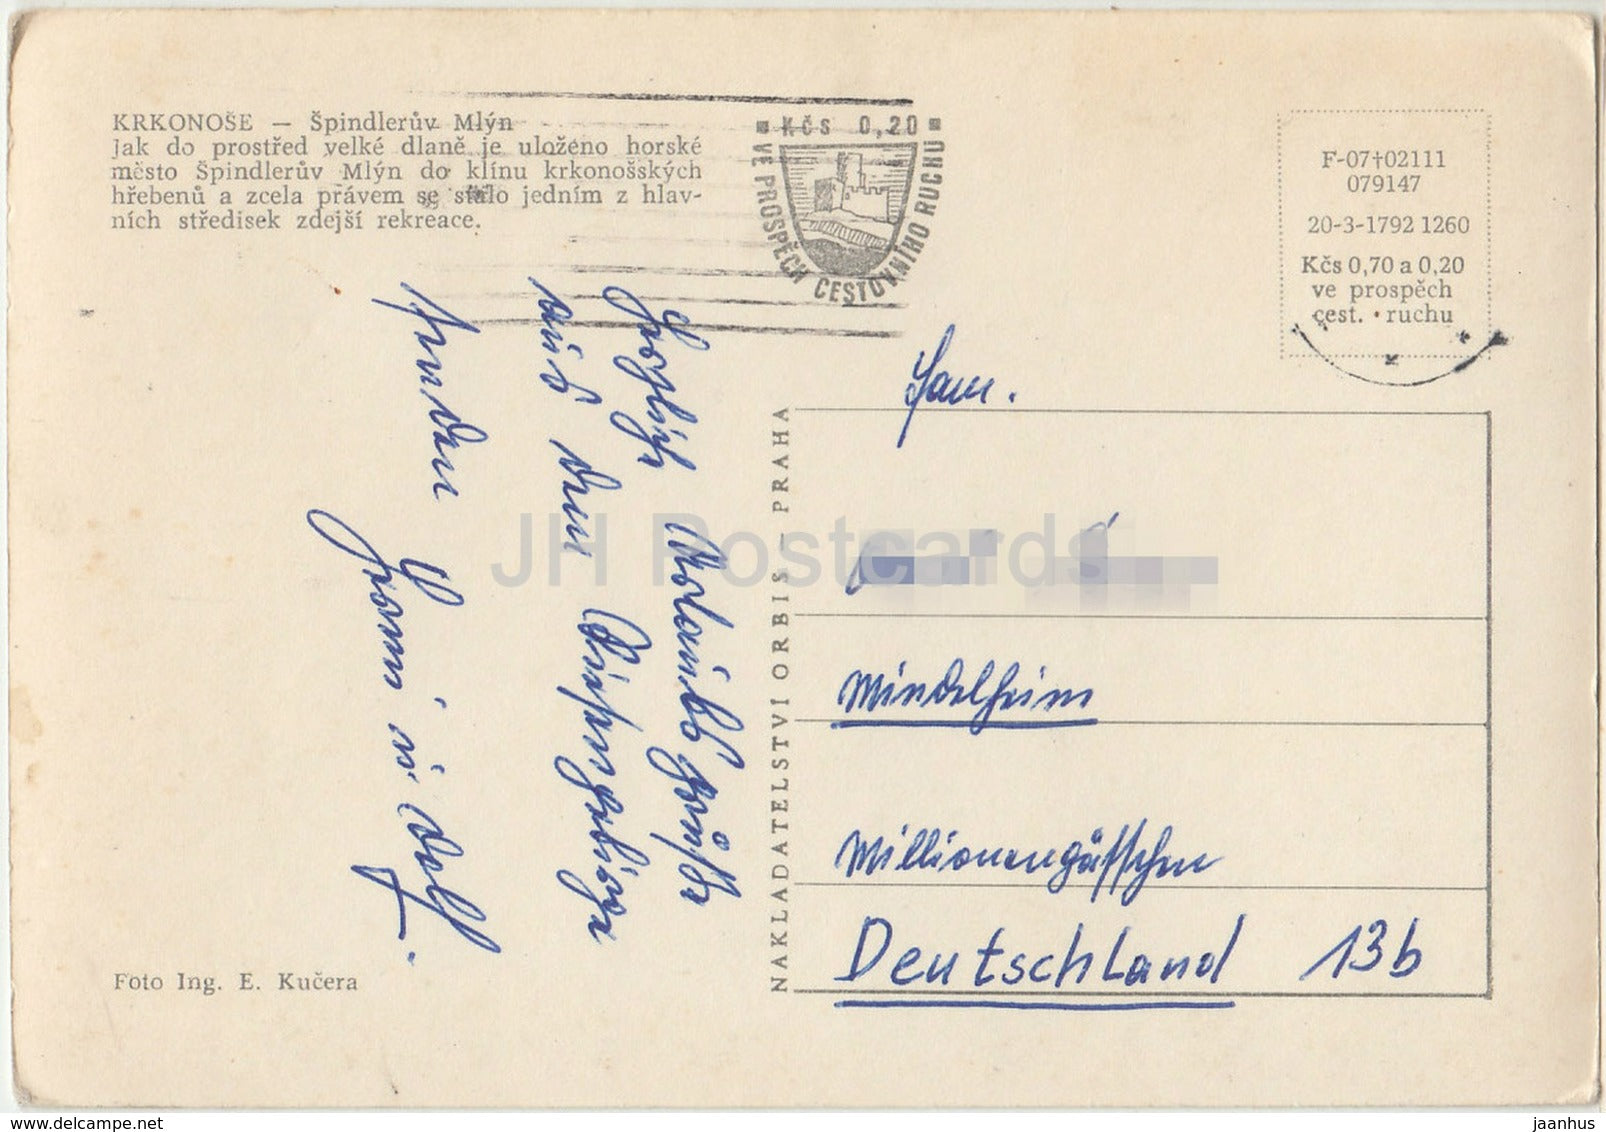 KRKONOŠE — Špindlerův Mlýn
Jak do prostřed velké dlaně je uloženo horské
město Špindlerův Mlýn do klínu krkonošských
hřebenů a zcela právem se stalo jedním z hlav-
ních středisek zdejší rekreace.
Kčs 0,20
VE PROSPĚCH CESTOVNÍHO RUCHU
F-07†02111
079147
20-3-1792 1260
Kčs 0,70 a 0,20
ve prospěch
cest. • ruchu
Herzlich Urlaubsgrüße
aus dem Riesengebirge
senden
Fam.
Mindelheim
Millionengässchen
Deutschland 13b
NAKLADATELSTVI ORBIS - PRAHA
Foto Ing. E. Kučera
JH Postcards
delcampe.net
jaanhus